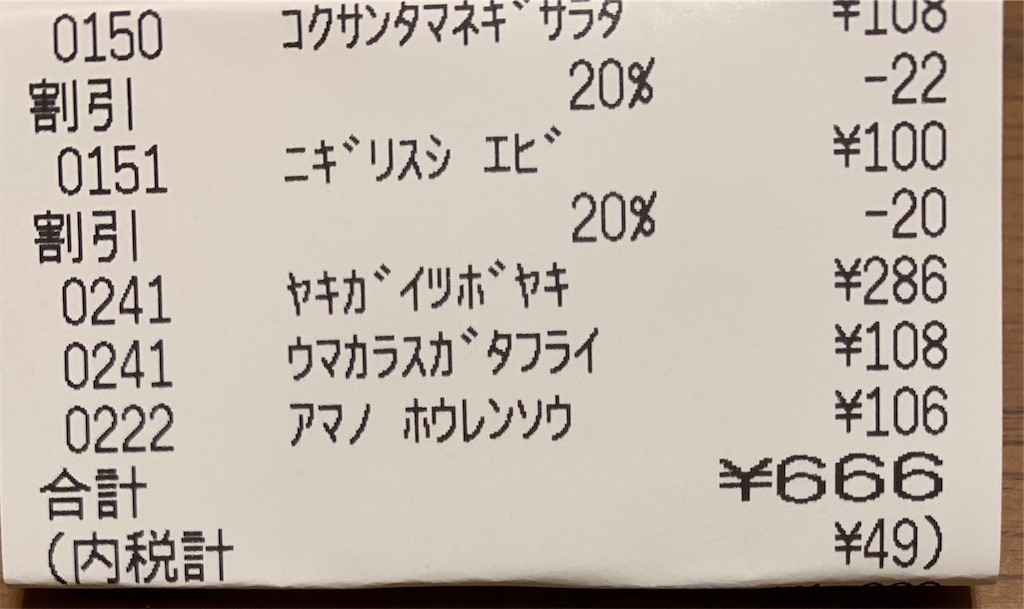 0150 コクサンタマネギサラダ ¥108
割引 20% -22
0151 ニギリスシ エビ ¥100
割引 20% -20
0241 ヤキガイツボヤキ ¥286
0241 ウマカラスガタフライ ¥108
0222 アマノ ホウレンソウ ¥106
合計 ¥666
(内税計 ¥49)